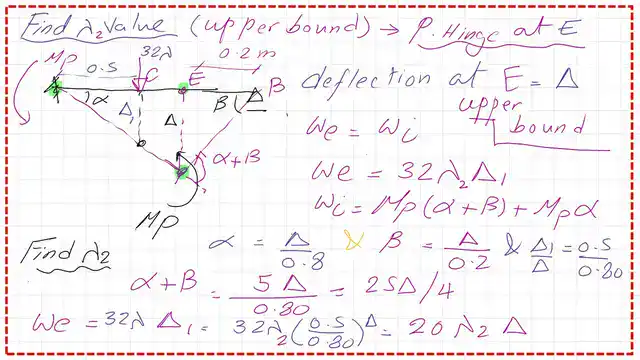 Find λ2 Value (upper bound) → P. Hinge at E
MP 0.5 32λ 0.2 m
C E B
α Δ1 Δ B Δ
deflection at E = Δ
upper bound
We = Wi
α+B
We = 32λ2Δ1
MP
Wi = Mp(α+B) + Mpα
Find λ2
α = Δ/0.8 & B = Δ/0.2 & Δ1/Δ = 0.5/0.80
α+B = 5Δ/0.80 = 25Δ/4
We = 32λ Δ1 = 32λ2(0.5/0.80)Δ = 20λ2 Δ